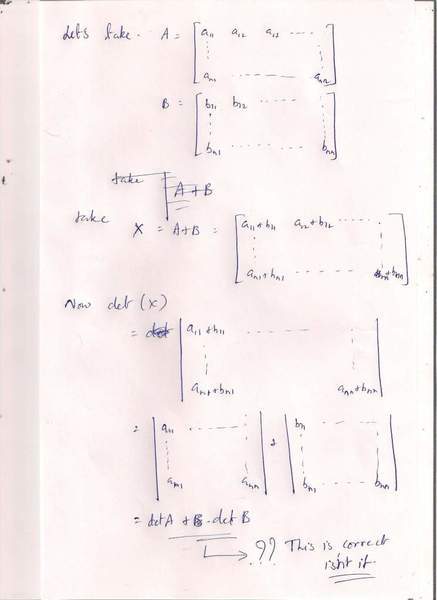 Lets take. A = [ a11 a12 a13 ....
an1 ........ ann ]
B = [ b11 b12 ....
bn1 ........ bnn ]
take
A+B
take
X = A+B = [ a11+b11 a12+b12 .....
an1+bn1 ....... ann+bnn ]
Now det (x)
= | a11+b11 .......
an1+bn1 ann+bnn |
= | a11 ....... | + | b11 ....... |
| an1 ann | | bn1 bnn |
= det A + det B
?? This is correct
isn't it